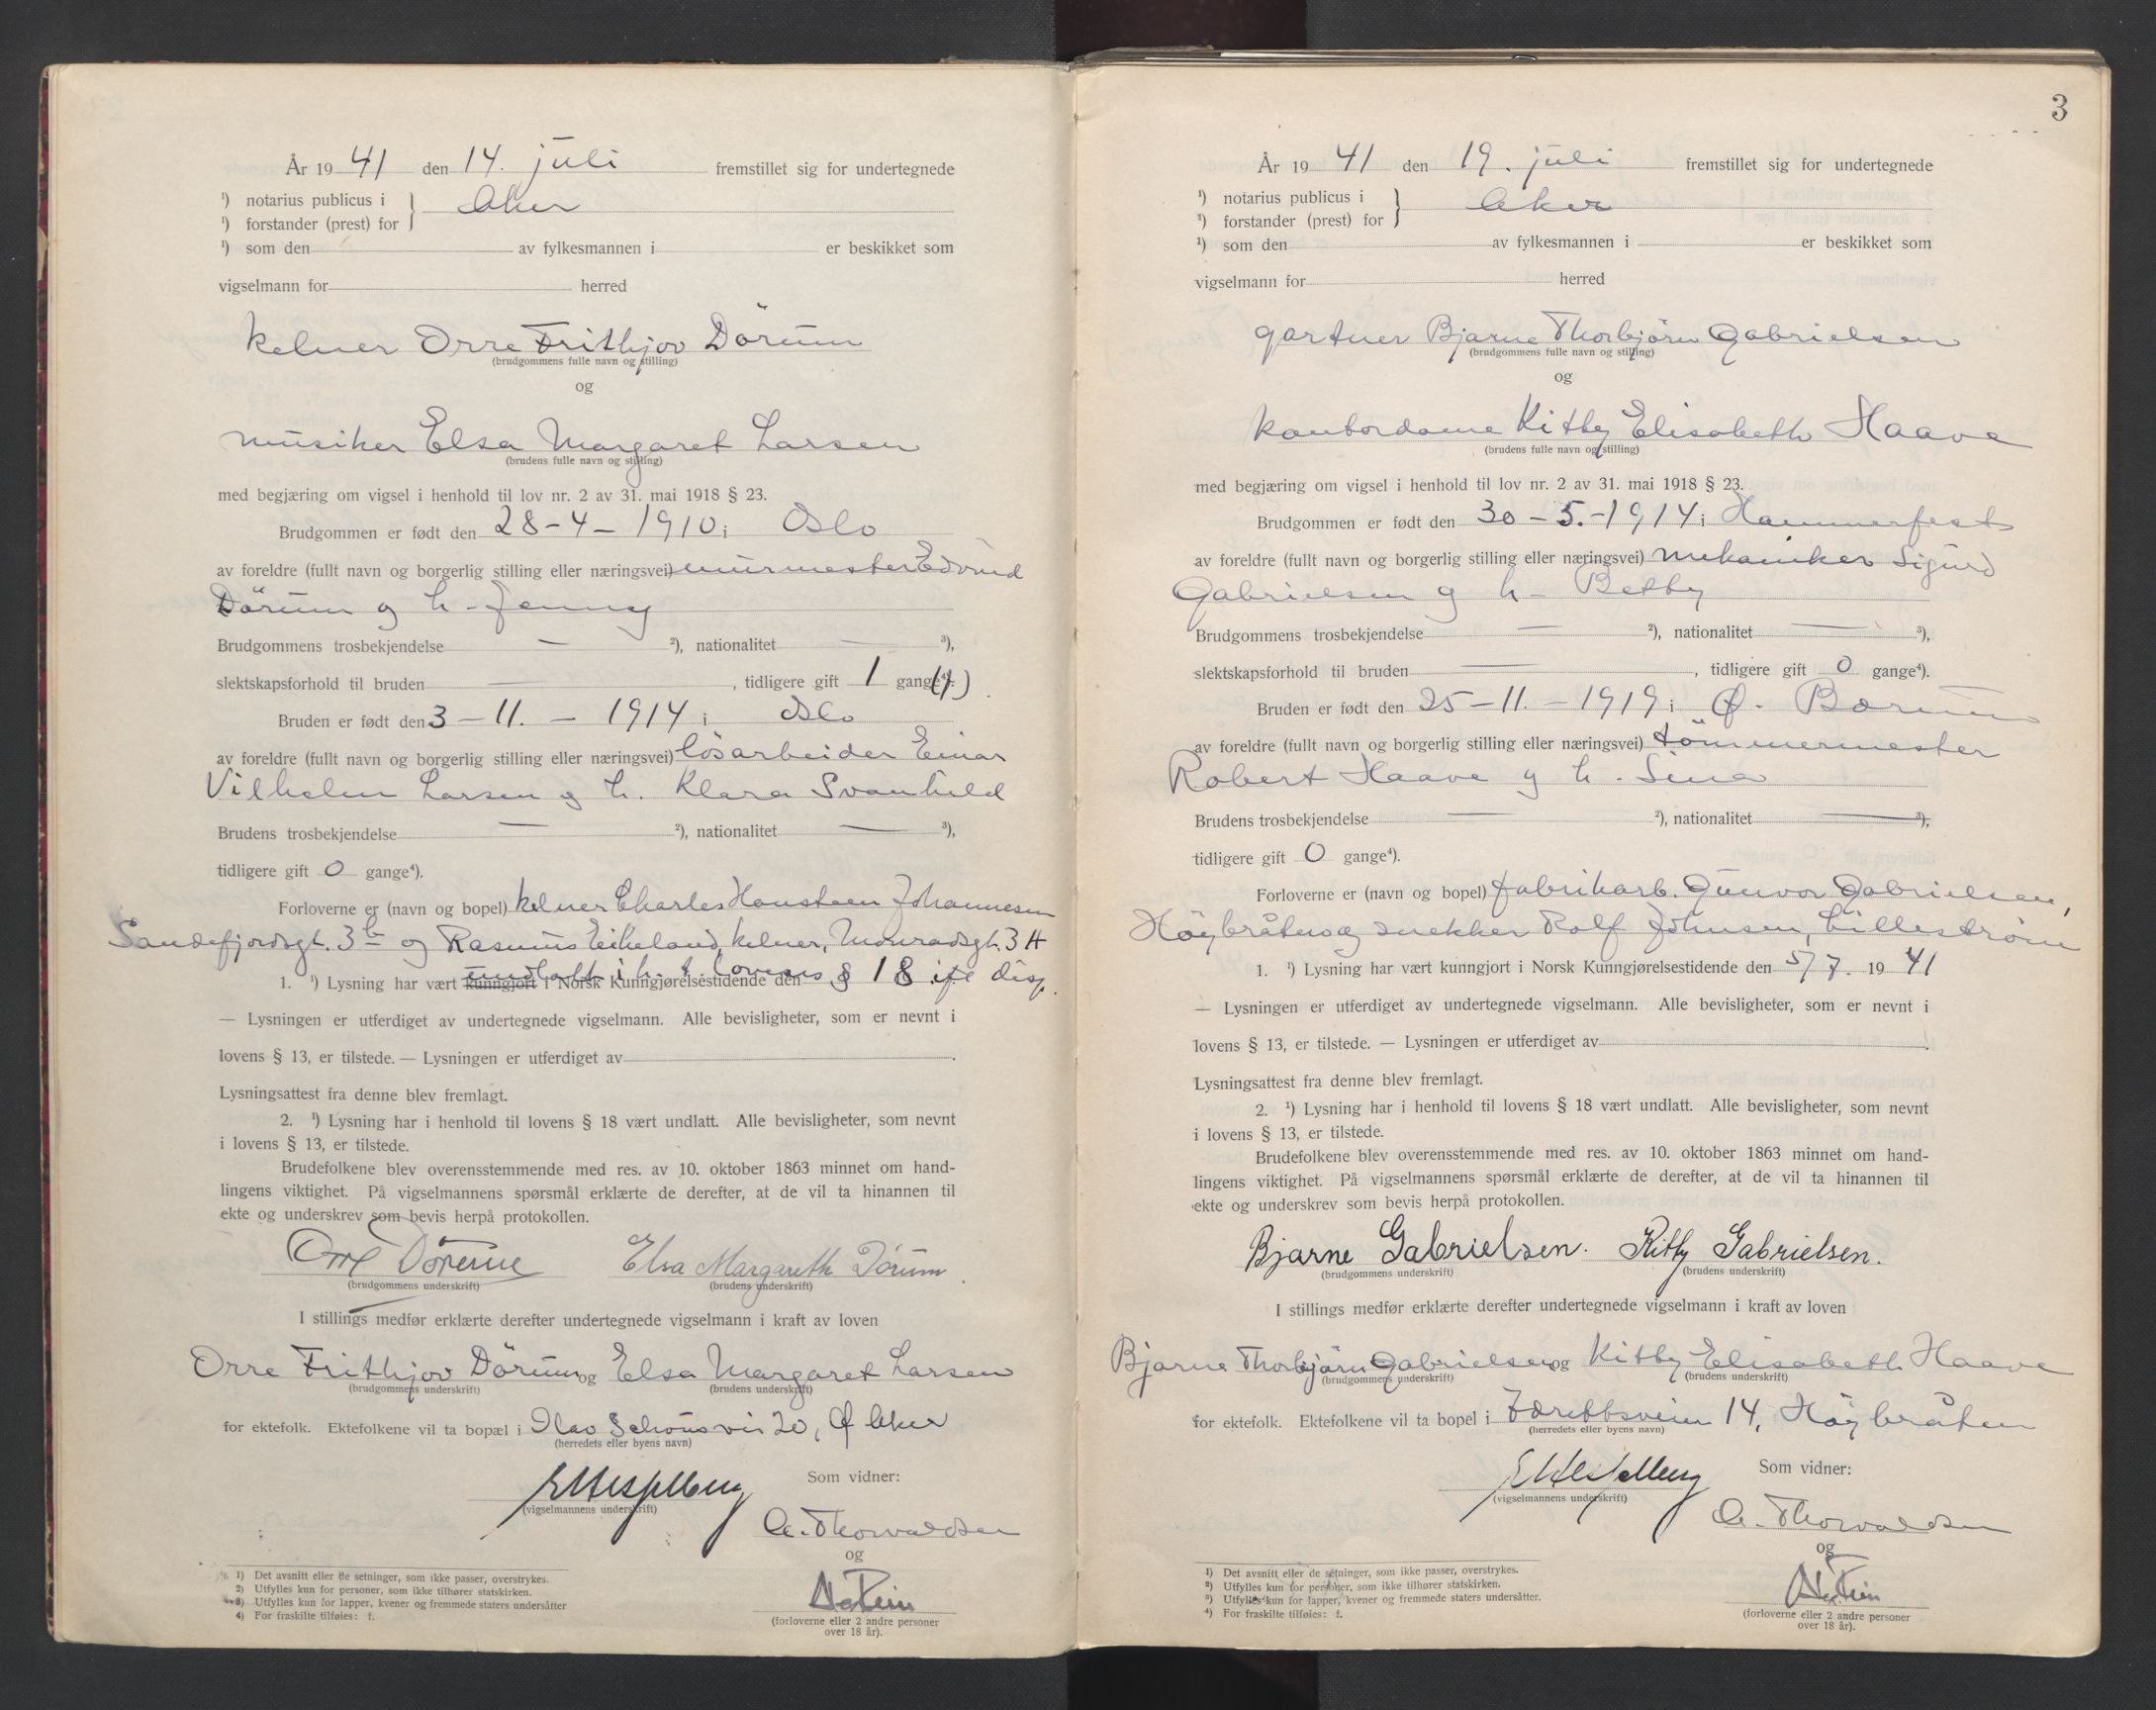 År 1941 den 14. juli fremstillet sig for undertegnede
¹) notarius publicus i } Aker
¹) forstander (prest) for
¹) som den av fylkesmannen i er beskikket som
vigselmann for herred
kelner Orre Frithjov Dörum
(brudgommens fulle navn og stilling)
og
musiker Elsa Margaret Larsen
(brudens fulle navn og stilling)
med begjæring om vigsel i henhold til lov nr. 2 av 31. mai 1918 § 23.
Brudgommen er født den 28-4-1910 i Oslo
av foreldre (fullt navn og borgerlig stilling eller næringsvei) murmester Edvind
Dörum og h. Jenny
Brudgommens trosbekjendelse — ²), nationalitet — ³),
slektskapsforhold til bruden —, tidligere gift 1 gange⁴). (f.)
Bruden er født den 3-11.-1914 i Oslo
av foreldre (fullt navn og borgerlig stilling eller næringsvei) løsarbeider Einar
Vilhelm Larsen og h. Klara Svanhild
Brudens trosbekjendelse — ²), nationalitet — ³),
tidligere gift 0 gange⁴).
Forloverne er (navn og bopel) kelner Charles Hansteen Johannesen
Sandefjordsgt. 3b og Rasmus Eikeland, kelner, Munradsgt. 3 A
1. ¹) Lysning har vært kunngjort i Norsk Kunngjørelsestidende den undlatt i h. t. lovens § 18 ifl disp.
— Lysningen er utferdiget av undertegnede vigselmann. Alle bevisligheter, som er nevnt i
lovens § 13, er tilstede. — Lysningen er utferdiget av .
Lysningsattest fra denne blev fremlagt.
2. ¹) Lysning har i henhold til lovens § 18 vært undlatt. Alle bevisligheter, som nevnt
i lovens § 13, er tilstede.
Brudefolkene blev overensstemmende med res. av 10. oktober 1863 minnet om hand-
lingens viktighet. På vigselmannens spørsmål erklærte de derefter, at de vil ta hinannen til
ekte og underskrev som bevis herpå protokollen.
Orre Dörum Elsa Margareth Dörum.
(brudgommens underskrift) (brudens underskrift)
I stillings medfør erklærte derefter undertegnede vigselmann i kraft av loven
Orre Frithjov Dörum og Elsa Margaret Larsen
(brudgommens underskrift) (brudens underskrift)
for ektefolk. Ektefolkene vil ta bopæl i Olav Schous vei 20, Ø Aker
(herredets eller byens navn)
Som vidner:
(vigselmannens underskrift)
A. Thorvaldsen
og
(forloverne eller 2 andre personer
over 18 år).
1) Det avsnitt eller de setninger, som ikke passer, overstrykes.
2) Utfylles kun for personer, som ikke tilhører statskirken.
3) Utfylles kun for lapper, kvener og fremmede staters undersåtter
4) For fraskilte tilføies: f.
3
År 1941 den 19. juli fremstillet sig for undertegnede
¹) notarius publicus i } Aker
¹) forstander (prest) for
¹) som den av fylkesmannen i er beskikket som
vigselmann for herred
gartner Bjarne Thorbjörn Gabrielsen
(brudgommens fulle navn og stilling)
og
kontordame Kitty Elisabeth Haave
(brudens fulle navn og stilling)
med begjæring om vigsel i henhold til lov nr. 2 av 31. mai 1918 § 23.
Brudgommen er født den 30-5.-1914 i Hammerfest
av foreldre (fullt navn og borgerlig stilling eller næringsvei) mekaniker Sigurd
Gabrielsen og h. Betty
Brudgommens trosbekjendelse — ²), nationalitet — ³),
slektskapsforhold til bruden —, tidligere gift 0 gange⁴).
Bruden er født den 25-11.-1919 i Ø. Bærum
av foreldre (fullt navn og borgerlig stilling eller næringsvei) tömmermester
Robert Haave og h. Sina
Brudens trosbekjendelse — ²), nationalitet — ³),
tidligere gift 0 gange⁴).
Forloverne er (navn og bopel) fabrikarb. Gunvor Gabrielsen,
Höybråten og snekker Rolf Johnsen, Lillestrøm
1. ¹) Lysning har vært kunngjort i Norsk Kunngjørelsestidende den 5/7. 1941
— Lysningen er utferdiget av undertegnede vigselmann. Alle bevisligheter, som er nevnt i
lovens § 13, er tilstede. — Lysningen er utferdiget av .
Lysningsattest fra denne blev fremlagt.
2. ¹) Lysning har i henhold til lovens § 18 vært undlatt. Alle bevisligheter, som nevnt
i lovens § 13, er tilstede.
Brudefolkene blev overensstemmende med res. av 10. oktober 1863 minnet om hand-
lingens viktighet. På vigselmannens spørsmål erklærte de derefter, at de vil ta hinannen til
ekte og underskrev som bevis herpå protokollen.
Bjarne Gabrielsen. Kitty Gabrielsen.
(brudgommens underskrift) (brudens underskrift)
I stillings medfør erklærte derefter undertegnede vigselmann i kraft av loven
Bjarne Thorbjörn Gabrielsen og Kitty Elisabeth Haave
(brudgommens underskrift) (brudens underskrift)
for ektefolk. Ektefolkene vil ta bopel i Idrettsveien 14, Höybråten
(herredets eller byens navn)
Som vidner:
(vigselmannens underskrift)
A. Thorvaldsen
og
(forloverne eller 2 andre personer
over 18 år).
¹) Det avsnitt eller de setninger, som ikke passer, overstrykes.
²) Utfylles kun for personer, som ikke tilhører statskirken.
³) Utfylles kun for lapper, kvener og fremmede staters undersåtter.
⁴) For fraskilte tilføies: f.